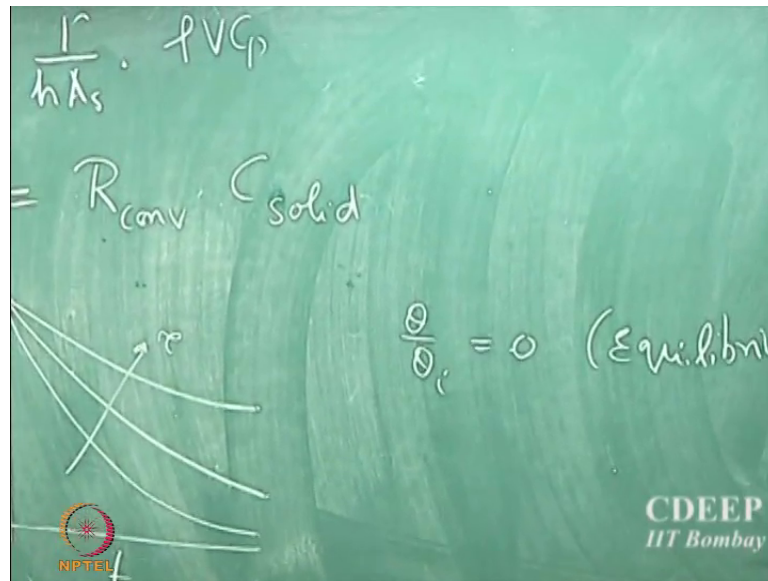 1/hAs . ρVCp
= Rconv Csolid
τ
θ/θi = 0 (Equilibri
t
NPTEL
CDEEP
IIT Bombay